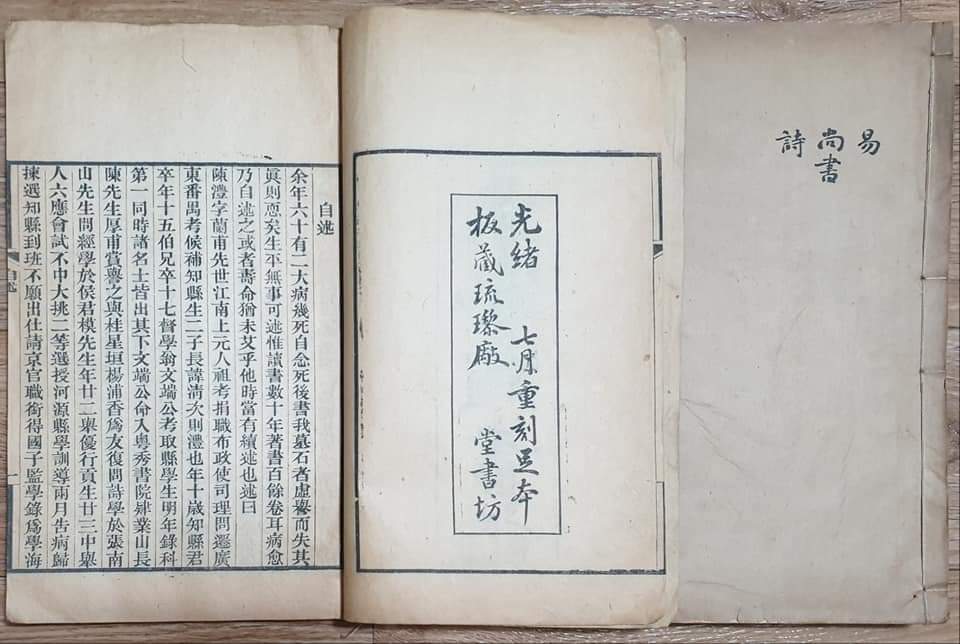 易
尚書
詩
光緒 七月重刻足本
板藏琉璃廠 堂書坊
自述
余年六十有二大病幾死自念死後書我墓石者虛譽而失其
眞則恧矣生平無事可述惟讀書數十年著書百餘卷耳病愈
乃自述之或者壽命猶未艾乎他時當有續述也述曰
陳澧字蘭甫先世江南上元人祖考捐職布政使司理問遷廣
東番禺考候補知縣生二子長諱淸次則澧也年十歲知縣君
卒年十五伯兄卒十七督學翁文端公考取縣學生明年錄科
第一同時諸名士皆出其下文端公命入粵秀書院肄業山長
陳先生厚甫賞譽之與桂星垣楊浦香爲友復問詩學於張南
山先生問經學於侯君模先生年廿二舉優行貢生廿三中舉
人六應會試不中大挑二等選授河源縣學訓導兩月告病歸
揀選知縣到班不願出仕請京官職銜得國子監學錄爲學海
自述